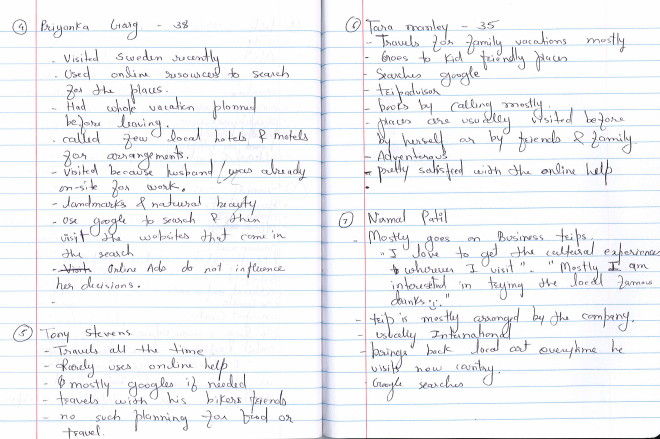 ④ Priyonka Garg - 38
- Visited Sweden recently
- Used online resources to search
for the places.
- Had whole vacation planned
before leaving.
- called few local hotels & motels
for arrangements.
- Visited because husband was already
on-site for work.
- landmarks & natural beauty
- use google to search & then
visit the websites that come in
the search
- Online Ads do not influence
her decisions.
-
⑤ Tony Stevens
- Travels all the time
- Rarely uses online help
- mostly googles if needed
- travels with his bikers friends
- no such planning for food or
travel.
⑥ Tara manley - 35
- Travels for family vacations mostly
- Goes to kid friendly places
- Searches google
- tripadvisor
- books by calling mostly.
- places are usually visited before
by herself or by friends & family
- Adventerous
- pretty satisfied with the online help
⑦ Nirmal Patil
- Mostly goes on Business trips.
"I love to get the cultural experiences
wherever I visit". "Mostly I am
interested in trying the local famous
drinks :)."
- trip is mostly arranged by the company.
- usually International
- brings back local art everytime he
visits new country.
- Google searches